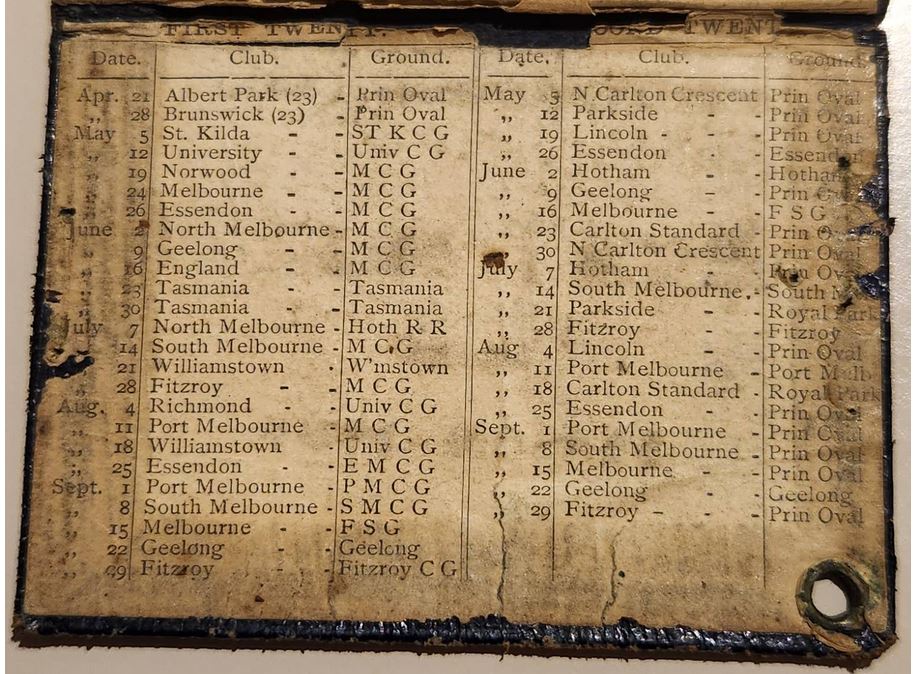 FIRST TWENTY.
Date. Club. Ground.
Apr. 21 Albert Park (23) - Prin Oval
„ 28 Brunswick (23) - Prin Oval
May 5 St. Kilda - - ST K C G
„ 12 University - - Univ C G
„ 19 Norwood - - M C G
„ 24 Melbourne - - M C G
„ 26 Essendon - - M C G
June 2 North Melbourne - M C G
„ 9 Geelong - - M C G
„ 16 England - - M C G
„ 23 Tasmania - - Tasmania
„ 30 Tasmania - - Tasmania
July 7 North Melbourne - Hoth R R
„ 14 South Melbourne - M C G
„ 21 Williamstown - W'mstown
„ 28 Fitzroy - - M C G
Aug. 4 Richmond - - Univ C G
„ 11 Port Melbourne - M C G
„ 18 Williamstown - Univ C G
„ 25 Essendon - - E M C G
Sept. 1 Port Melbourne - P M C G
„ 8 South Melbourne - S M C G
„ 15 Melbourne - - F S G
„ 22 Geelong - - Geelong
„ 29 Fitzroy - - Fitzroy C G
TWENT
Date. Club. Ground.
May 5 N Carlton Crescent Prin Oval
„ 12 Parkside - - Prin Oval
„ 19 Lincoln - - - Prin Oval
„ 26 Essendon - - Essendon
June 2 Hotham - - Hotham
„ 9 Geelong - - Prin Oval
„ 16 Melbourne - - F S G
„ 23 Carlton Standard - Prin Oval
„ 30 N Carlton Crescent Prin Oval
July 7 Hotham - - Prin Oval
„ 14 South Melbourne - South M
„ 21 Parkside - - Royal Park
„ 28 Fitzroy - - Fitzroy
Aug 4 Lincoln - - Prin Oval
„ 11 Port Melbourne - Port Melb
„ 18 Carlton Standard - Royal Park
„ 25 Essendon - - Prin Oval
Sept. 1 Port Melbourne - Prin Oval
„ 8 South Melbourne - Prin Oval
„ 15 Melbourne - - Prin Oval
„ 22 Geelong - - Geelong
„ 29 Fitzroy - - - Prin Oval